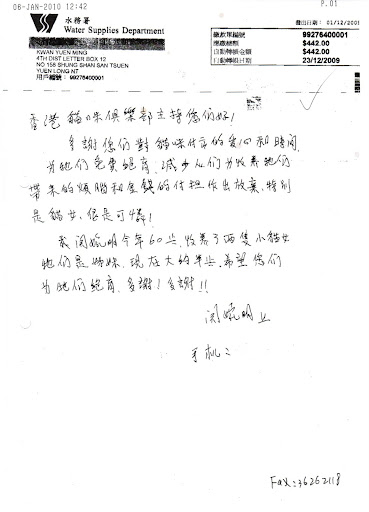 06-JAN-2010 12:42
P.01
水務署
Water Supplies Department
發出日期: 01/12/2009
KWAN YUEN MING
4TH DIST LETTER BOX 12
NO 158 SHUNG SHAN SAN TSUEN
YUEN LONG NT
用戶編號: 99276400001
繳款單編號 99276400001
應繳總額 $442.00
自動轉帳金額 $442.00
自動轉帳日期 23/12/2009
香港貓咪俱樂部主持您们好!
多謝您们對貓咪付出的愛心和時間,
为牠们免費絕育,減少人们为收养牠们
帶来的煩腦和金錢的付担作出放棄,特别
是貓女,很是可憐!
我関婉明今年60岁,收养了两隻小貓女
牠们是姊妹,現在大約半岁,希望您们
为牠们絕育,多謝!多謝!!
関婉明上
手机:
Fax:36262118